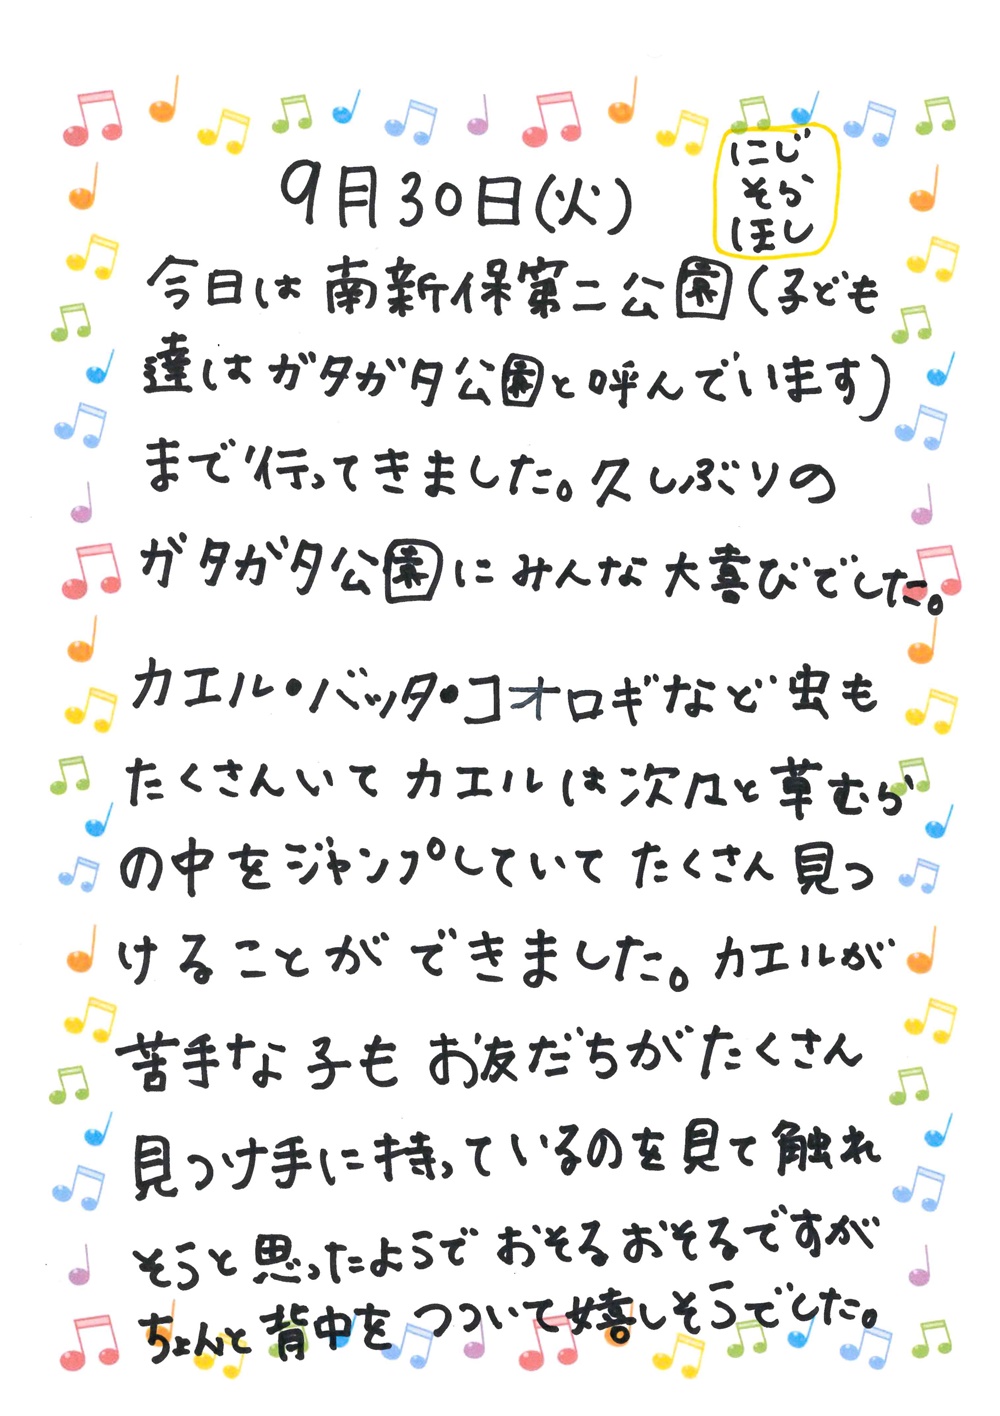 9月30日(火)
にじ
そら
ほし
今日は 南新保第二公園(子ども
達は ガタガタ公園と呼んでいます)
まで行ってきました。久しぶりの
ガタガタ公園に みんな 大喜びでした。
カエル・バッタ・コオロギなど 虫も
たくさんいて カエルは 次々と 草むら
の中を ジャンプしていて たくさん 見つ
けることが できました。カエルが
苦手な 子も お友だちが たくさん
見つけ手に持っているのを見て 触れ
そうと 思ったようで おそるおそるですが
ちょんと 背中を つついて嬉しそうでした。